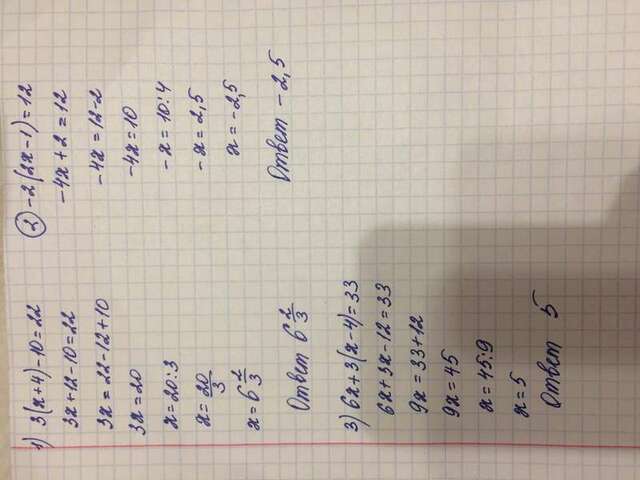 1) 3(x+4)-10=22
3x+12-10=22
3x=22-12+10
3x=20
x=20:3
x=20/3
x=6 2/3
Ответ 6 2/3
② -2(2x-1)=12
-4x+2=12
-4x=12-2
-4x=10
-x=10:4
-x=2,5
x=-2,5
Ответ -2,5
3) 6x+3(x-4)=33
6x+3x-12=33
9x=33+12
9x=45
x=45:9
x=5
Ответ 5